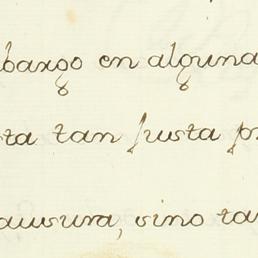 bargo en alguna
ta tan justa p
ausura, sino ta